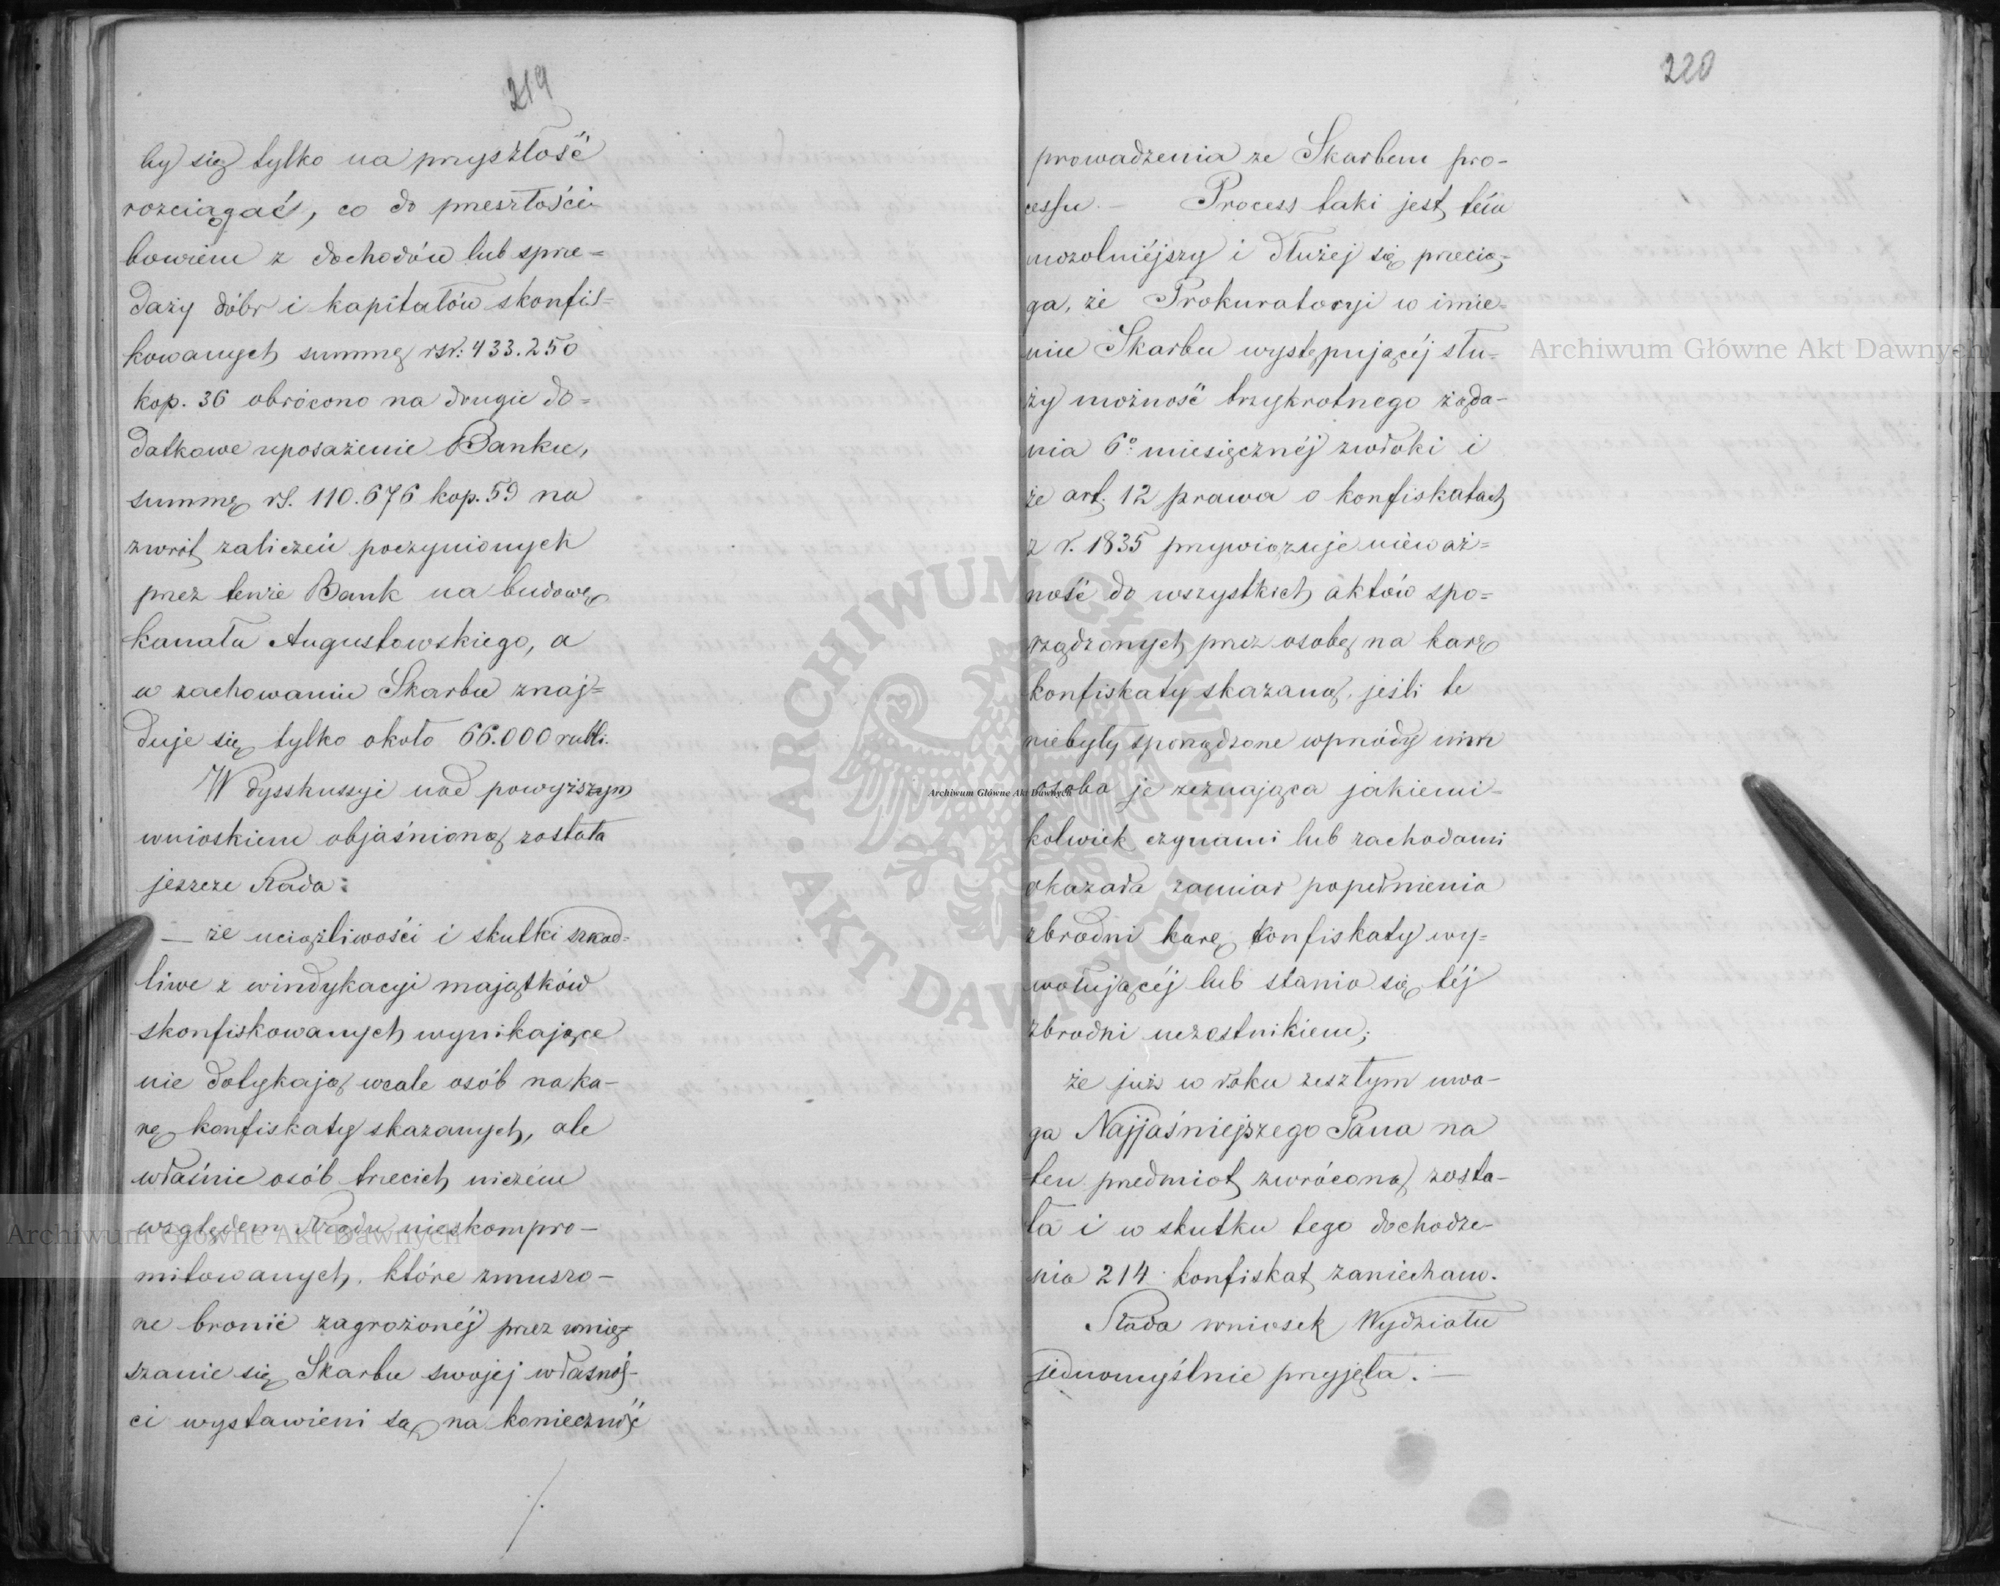 219
by się tylko na przyszłość
rozciągać, co do przeszłości
bowiem z dochodów lub sprze=
daży dóbr i kapitałów skonfis=
kowanych summę rsr: 433.250
kop. 36 obrócono na drugie do=
datkowe uposażenie Banku,
summę rS. 110.676 kop. 59 na
zwrót zaliczeń poczynionych
przez tenże Bank na budowę
kanału Augustowskiego, a
w zachowaniu Skarbu znaj=
duje się tylko około 66.000 rubli.
W dysskussyi nad powyższym
wnioskiem objaśnioną została
jeszcze Rada:
— że uciążliwości i skutki szkod=
liwe z windykacyi majątków
skonfiskowanych wynikające
nie dotykają wcale osób na ka-
rę konfiskaty skazanych, ale
właśnie osób trzecich niczém
względem Rządu nieskompro-
mitowanych, które zmuszo-
ne bronić zagrożonéj przez wmię-
szanie się Skarbu swojej własnoś-
ci wystawieni są na konieczność
/.
220
prowadzenia ze Skarbem pro-
cessu. — Process taki jest tém
mozolniéjszy i dłużéj się przecią-
ga, że Prokuratoryi w imie-
niu Skarbu występującéj słu=
ży możność trzykrotnego żąda-
nia 6º miesięcznéj zwłoki i
że art. 12 prawa o konfiskatach
z r. 1835 przywiązuje nieważ=
ność do wszystkich aktów spo=
rządzonych przez osobę na karę
konfiskaty skazaną, jeśli te
niebyły sporządzone wprzódy nim
osoba je zeznająca jakiemi-
kolwiek czynami lub zachodami
okazała zamiar popełnienia
zbrodni karę konfiskaty wy=
wołującéj lub stania się téj
zbrodni uczestnikiem;
że już w roku zeszłym uwa-
ga Najjaśniejszego Pana na
ten przedmiot zwróconą zosta-
ła i w skutku tego dochodze-
nia 214 konfiskat zaniechano.
Rada wniosek Wydziału
jednomyślnie przyjęła. —
Archiwum Główne Akt Dawnych
Archiwum Główne Akt Dawnych
Archiwum Główne Akt Dawnych
ARCHIWUM GŁÓWNE AKT DAWNYCH